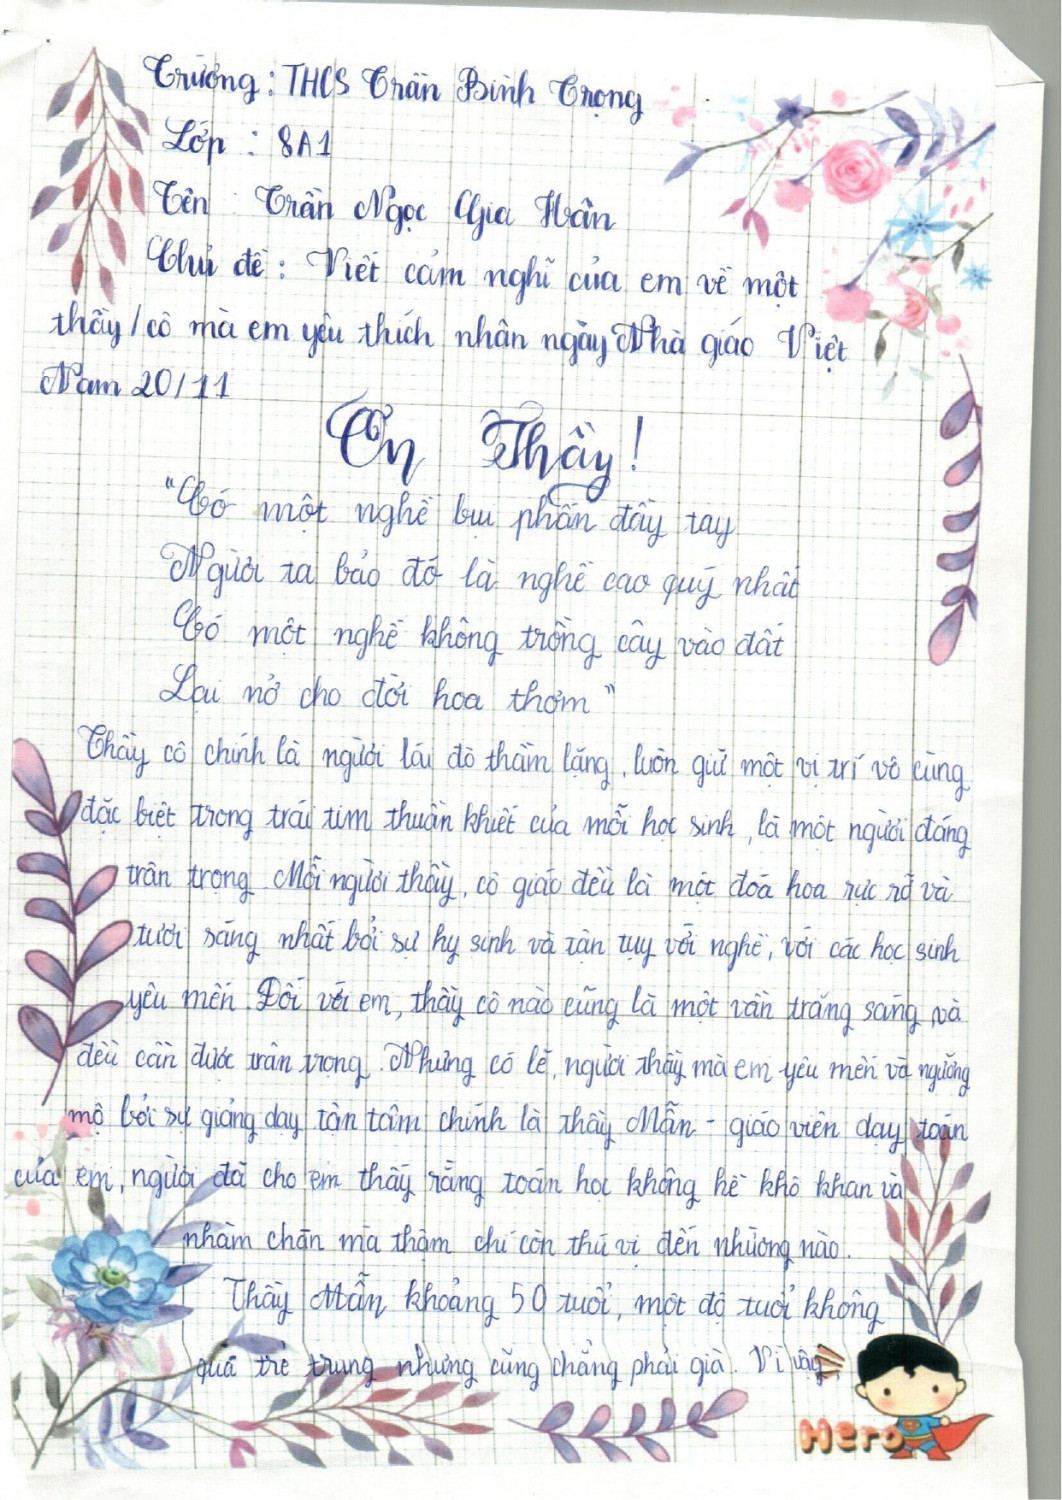 Trường: THCS Trần Bình Trọng
Lớp : 8A1
Tên : Trần Ngọc Gia Hân
Chủ đề: Viết cảm nghĩ của em về một
thầy/cô mà em yêu thích nhân ngày Nhà giáo Việt
Nam 20/11
Ơn Thầy!
"Có một nghề bụi phấn đầy tay
Người ta bảo đó là nghề cao quý nhất
Có một nghề không trồng cây vào đất
Lại nở cho đời hoa thơm"
Thầy cô chính là người lái đò thầm lặng, luôn giữ một vị trí vô cùng
đặc biệt trong trái tim thuần khiết của mỗi học sinh, là một người đáng
trân trọng. Mỗi người thầy, cô giáo đều là một đóa hoa rực rỡ và
tươi sáng nhất bởi sự hy sinh và tận tụy với nghề, với các học sinh
yêu mến. Đối với em, thầy cô nào cũng là một vần trăng sáng và
đều cần được trân trọng. Nhưng có lẽ, người thầy mà em yêu mến và ngưỡng
mộ bởi sự giảng dạy tận tâm chính là thầy Mẫn - giáo viên dạy toán
của em, người đã cho em thấy rằng toán học không hề khô khan và
nhàm chán mà thậm chí còn thú vị đến nhường nào.
Thầy Mẫn khoảng 50 tuổi, một độ tuổi không
quá trẻ trung nhưng cũng chẳng phải già. Vì vậy
Hero